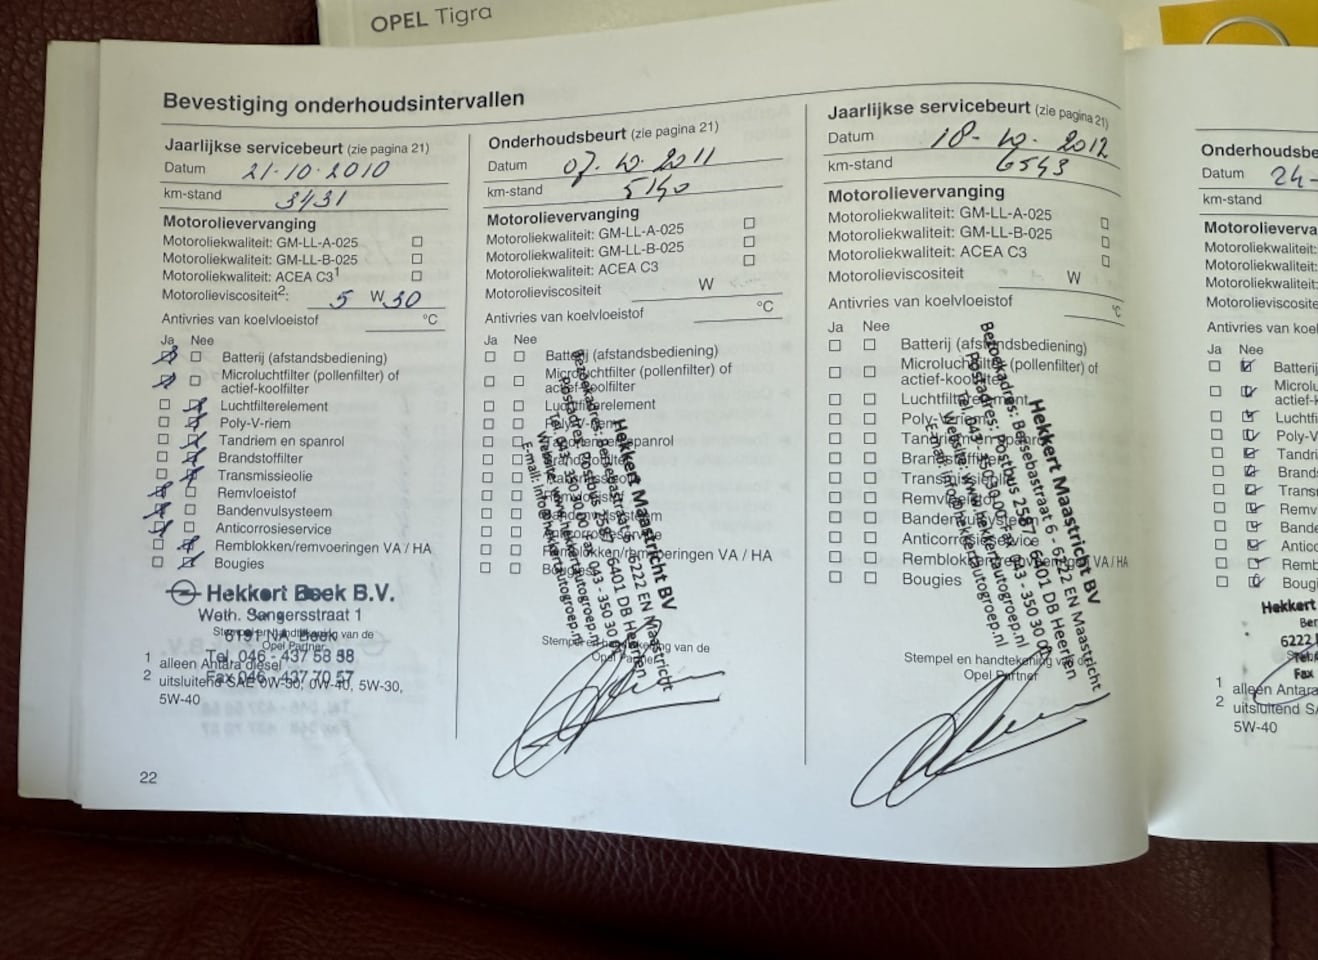 OPEL Tigra
Bevestiging onderhoudsintervallen
Jaarlijkse servicebeurt (zie pagina 21)
Datum 21-10-2010
km-stand 3431
Motorolievervanging
Motoroliekwaliteit: GM-LL-A-025
Motoroliekwaliteit: GM-LL-B-025
Motoroliekwaliteit: ACEA C3¹
Motorolieviscositeit²: 5 W 30
Antivries van koelvloeistof °C
Ja Nee
Batterij (afstandsbediening)
Microluchtfilter (pollenfilter) of
actief-koolfilter
Luchtfilterelement
Poly-V-riem
Tandriem en spanrol
Brandstoffilter
Transmissieolie
Remvloeistof
Bandenvulsysteem
Anticorrosieservice
Remblokken/remvoeringen VA / HA
Bougies
Hekkert Beek B.V.
Weth. Sangersstraat 1
6191 NA Beek
Stempel en handtekening van de
Opel Partner
Tel. 046 - 437 58 58
Fax 046 - 437 70 57
1 alleen Antara diesel
2 uitsluitend SAE 0W-30, 0W-40, 5W-30,
5W-40
22
Onderhoudsbeurt (zie pagina 21)
Datum 07-10-2011
km-stand 5140
Motorolievervanging
Motoroliekwaliteit: GM-LL-A-025
Motoroliekwaliteit: GM-LL-B-025
Motoroliekwaliteit: ACEA C3
Motorolieviscositeit W
Antivries van koelvloeistof °C
Ja Nee
Batterij (afstandsbediening)
Microluchtfilter (pollenfilter) of
actief-koolfilter
Luchtfilterelement
Poly-V-riem
Tandriem en spanrol
Brandstoffilter
Transmissieolie
Remvloeistof
Bandenvulsysteem
Anticorrosieservice
Remblokken/remvoeringen VA / HA
Bougies
Hekkert Maastricht BV
Bezoekadres: Bersebastraat 6 - 6222 EN Maastricht
Postadres: Postbus 2587 - 6401 DB Heerlen
Tel. 043 - 350 30 00 Fax 043 - 350 30
Website: www.hekkertautogroep.nl
E-mail: info@hekkertautogroep.nl
Stempel en handtekening van de
Opel Partner
Jaarlijkse servicebeurt (zie pagina 21)
Datum 18-10-2012
km-stand 6543
Motorolievervanging
Motoroliekwaliteit: GM-LL-A-025
Motoroliekwaliteit: GM-LL-B-025
Motoroliekwaliteit: ACEA C3
Motorolieviscositeit W
Antivries van koelvloeistof °C
Ja Nee
Batterij (afstandsbediening)
Microluchtfilter (pollenfilter) of
actief-koolfilter
Luchtfilterelement
Poly-V-riem
Tandriem en spanrol
Brandstoffilter
Transmissieolie
Remvloeistof
Bandenvulsysteem
Anticorrosieservice
Remblokken/remvoeringen VA / HA
Bougies
Hekkert Maastricht BV
Bezoekadres: Bersebastraat 6 - 6222 EN Maastricht
Postadres: Postbus 2587 - 6401 DB Heerlen
Tel. 043 - 350 30 00 Fax 043 - 350 30
Website: www.hekkertautogroep.nl
E-mail: info@hekkertautogroep.nl
Stempel en handtekening van de
Opel Partner
Onderhoudsbe
Datum 24-
km-stand
Motorolieverva
Motoroliekwaliteit:
Motoroliekwaliteit:
Motoroliekwaliteit:
Motorolieviscosite
Antivries van koel
Ja Nee
Batterij
Microlu
actief-k
Luchtfi
Poly-V
Tandri
Brands
Transm
Remv
Bande
Antico
Remb
Bougi
Hekkert
Ber
6222
Tel.
Fax
1 alleen Antara
2 uitsluitend SA
5W-40